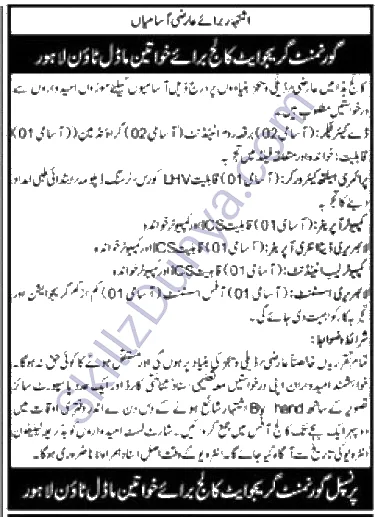 اشتہار برائے عارضی آسامیاں
گورنمنٹ گریجوایٹ کالج برائے خواتین ماڈل ٹاؤن لاہور
کالج ہذا میں عارضی / ڈیلی ویجز بنیادوں پر درج ذیل آسامیوں کیلئے موزوں امیدواروں سے
درخواستیں مطلوب ہیں۔
ڈے کیئر ٹیکر: (آسامی 02) واش روم اٹینڈنٹ (آسامی 02) گراؤنڈ مین (آسامی 01)
قابلیت: خواندہ اور متعلقہ فیلڈ میں تجربہ
پرائمری ہیلتھ کیئر ورکر: (آسامی 01) قابلیت LHV کورس، نرسنگ ڈپلومہ، ابتدائی طبی امداد
دینے کا تجربہ
کمپیوٹر آپریٹر: (آسامی 01) قابلیت ICS اور کمپیوٹر خواندہ
لائبریری ڈیٹا انٹری آپریٹر: (آسامی 01) قابلیت ICS اور کمپیوٹر خواندہ
کمپیوٹر لیب اٹینڈنٹ: (آسامی 01) قابلیت ICS اور کمپیوٹر خواندہ
لائبریری اسسٹنٹ: (آسامی 01) آفس اسسٹنٹ (آسامی 01) کم از کم گریجوایشن اور
تجربہ کا کو اہمیت دی جائے گی۔
شرائط و ضوابط:
تمام تقرریاں خالصتاً عارضی / ڈیلی ویجز کی بنیاد پر ہوں گی اور مستقل ہونے کا کوئی حق نہ ہوگا۔
خواہشمند امیدواران اپنی درخواستیں معہ تعلیمی اسناد، شناختی کارڈ اور ایک عدد پاسپورٹ سائز
تصویر کے ساتھ By hand اشتہار شائع ہونے کے دس دن کے اندر دفتری اوقات میں
دوپہر ایک بجے تک کالج آفس میں جمع کروائیں۔ شارٹ لسٹ امیدواروں کو بذریعہ ٹیلیفون
انٹرویو کی تاریخ سے آگاہ کیا جائے گا۔ انٹرویو کے وقت اصل اسناد ہمراہ لانا ضروری ہوگا۔
پرنسپل گورنمنٹ گریجوایٹ کالج برائے خواتین ماڈل ٹاؤن لاہور
skillzDunya.com